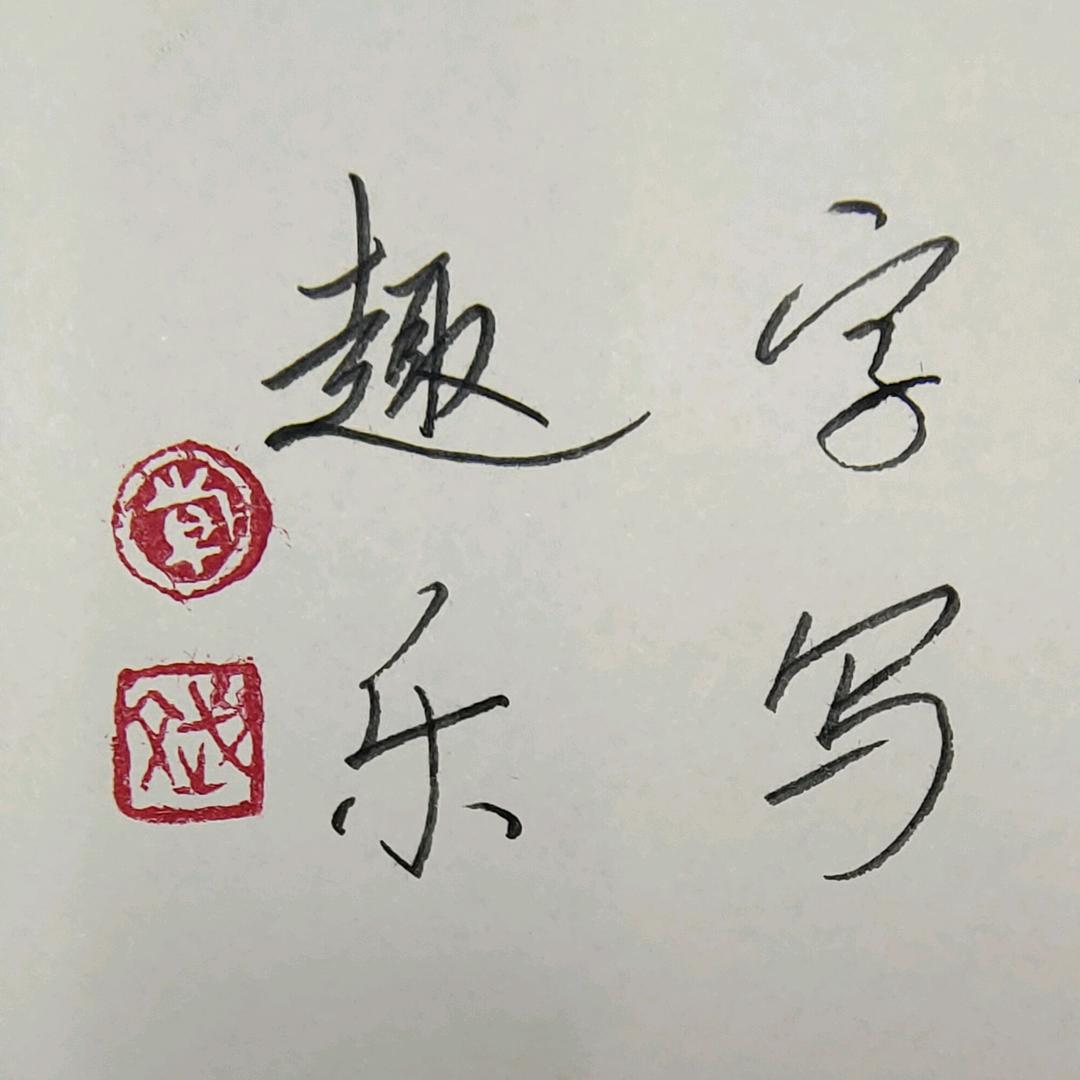 字写
趣乐